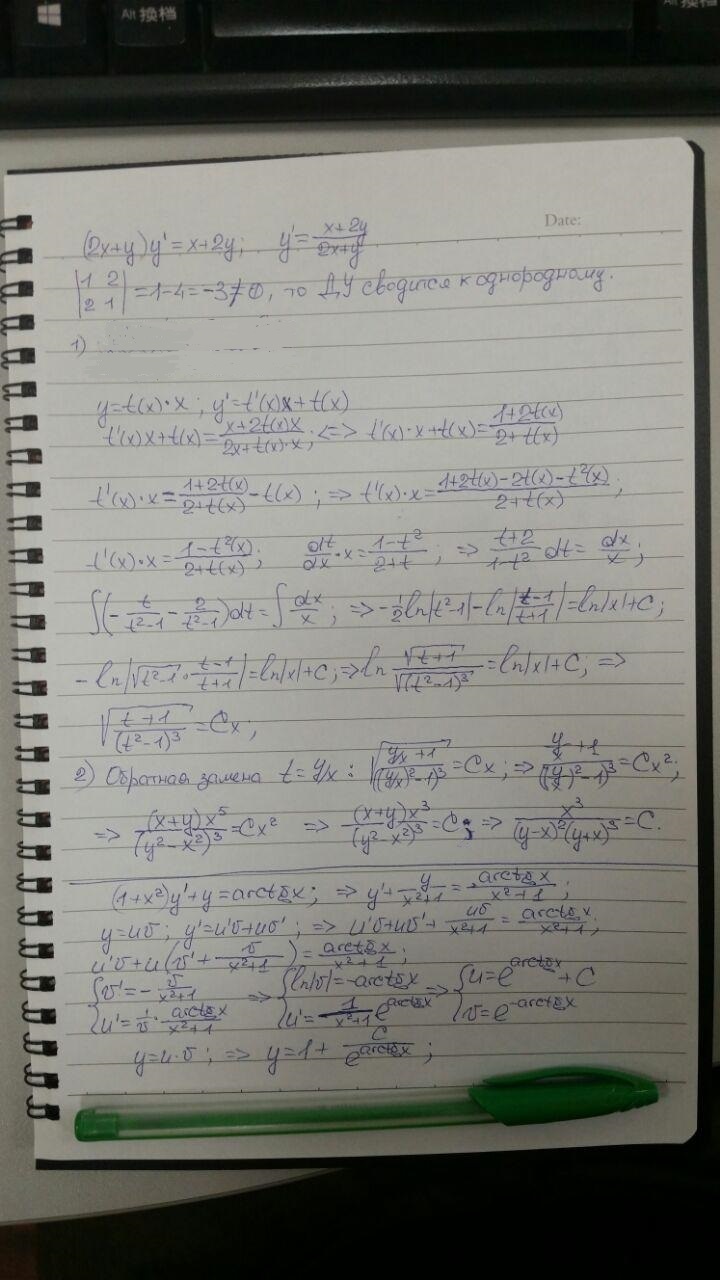 Alt 换档
Alt 换档
Date:
(2x+y)y' = x+2y; y' = \frac{x+2y}{2x+y}
\begin{vmatrix} 1 & 2 \\ 2 & 1 \end{vmatrix} = 1-4 = -3 ≠ 0, то ДУ сводится к однородному.
1)
y = t(x)·x; y' = t'(x)x + t(x)
t'(x)x + t(x) = \frac{x+2t(x)x}{2x+t(x)·x}; <=> t'(x)·x + t(x) = \frac{1+2t(x)}{2+t(x)}
t'(x)·x = \frac{1+2t(x)}{2+t(x)} - t(x); => t'(x)·x = \frac{1+2t(x)-2t(x)-t²(x)}{2+t(x)};
t'(x)·x = \frac{1-t²(x)}{2+t(x)}; \frac{dt}{dx}·x = \frac{1-t²}{2+t}; => \frac{t+2}{1-t²}dt = \frac{dx}{x};
∫(-\frac{t}{t²-1} - \frac{2}{t²-1})dt = ∫\frac{dx}{x}; => -\frac{1}{2}ln|t²-1| - ln|\frac{t-1}{t+1}| = ln|x| + C;
-ln|\sqrt{t²-1}·\frac{t-1}{t+1}| = ln|x| + C; => ln\frac{\sqrt{t+1}}{\sqrt{(t²-1)³}} = ln|x| + C; =>
\sqrt{\frac{t+1}{(t²-1)³}} = Cx;
2) Обратная замена t = y/x: \sqrt{\frac{y/x+1}{((y/x)²-1)³}} = Cx; => \frac{\frac{y}{x}+1}{((\frac{y}{x})²-1)³} = Cx²;
=> \frac{(x+y)x⁵}{(y²-x²)³} = Cx² => \frac{(x+y)x³}{(y²-x²)³} = C; => \frac{x³}{(y-x)²(y+x)³} = C.
(1+x²)y' + y = arctgx; => y' + \frac{y}{x²+1} = \frac{arctgx}{x²+1};
y = uv; y' = u'v + uv'; => u'v + uv' + \frac{uv}{x²+1} = \frac{arctgx}{x²+1};
u'v + u(v' + \frac{v}{x²+1}) = \frac{arctgx}{x²+1};
\begin{cases} v' = -\frac{v}{x²+1} \\ u' = \frac{1}{v}·\frac{arctgx}{x²+1} \end{cases} => \begin{cases} ln|v| = -arctgx \\ u' = \frac{1}{x²+1}e^{arctgx} \end{cases} => \begin{cases} u = e^{arctgx} + C \\ v = e^{-arctgx} \end{cases}
y = u·v; => y = 1 + \frac{C}{e^{arctgx}};